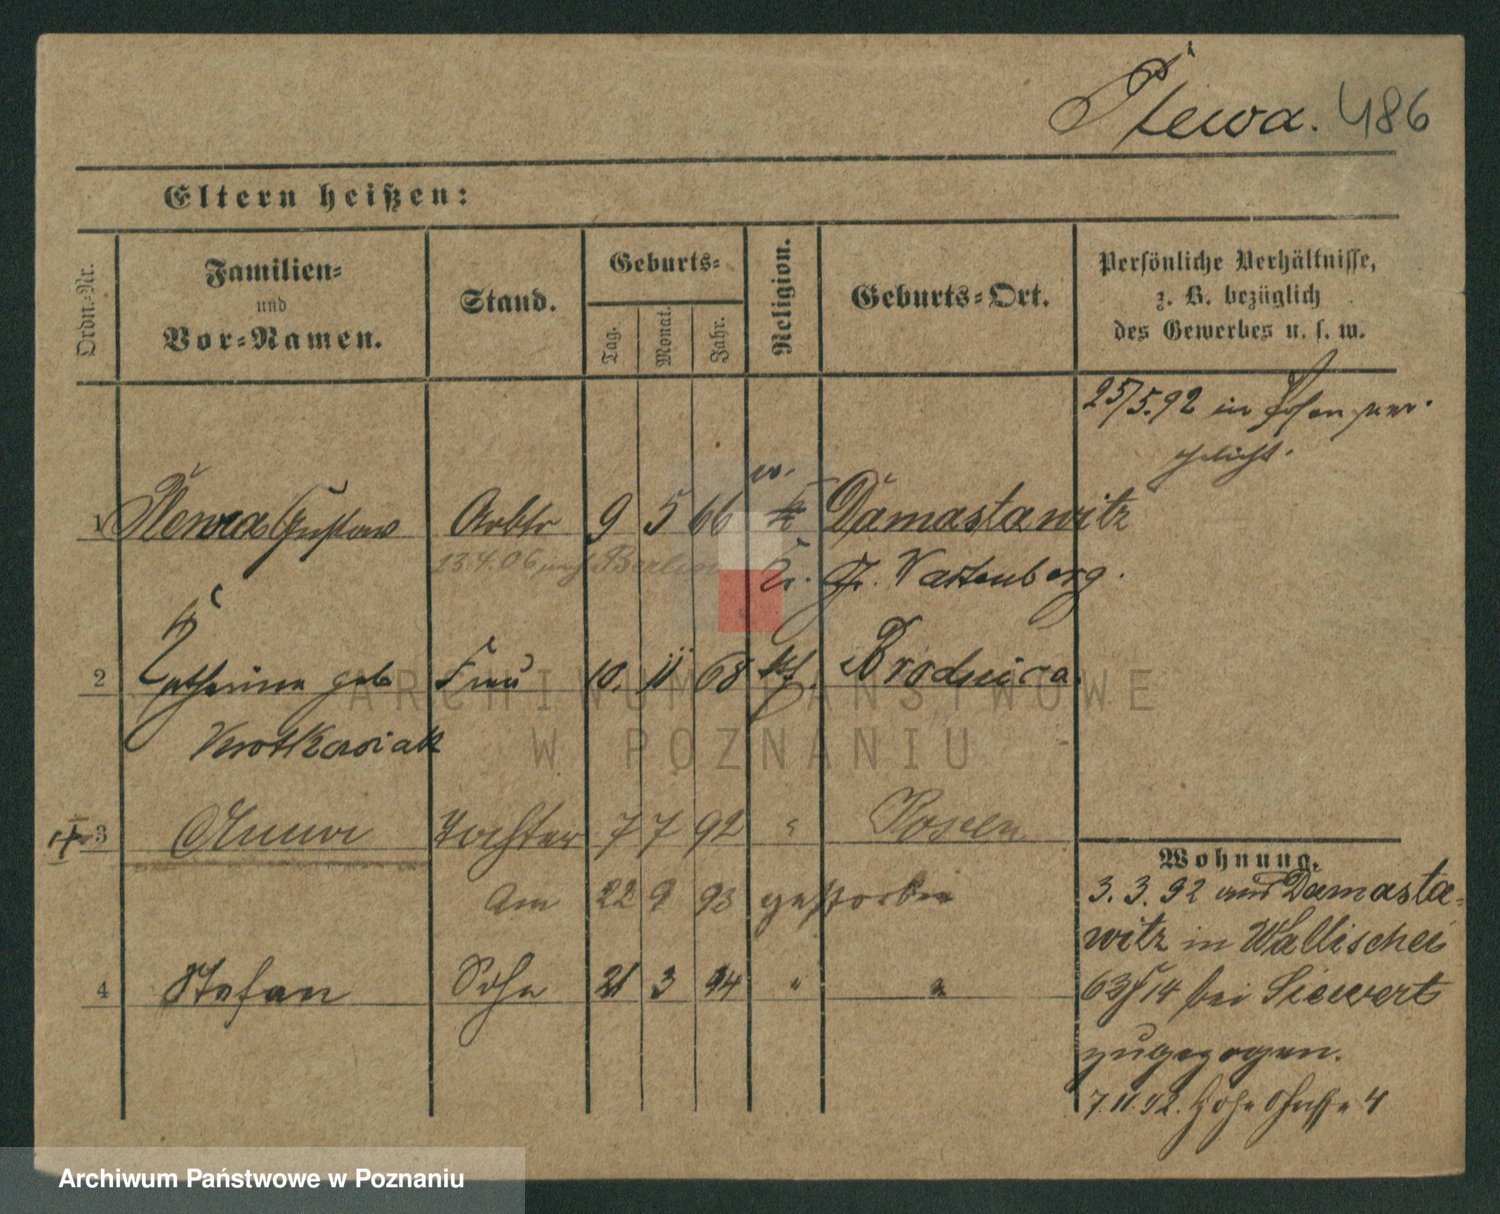 Plewa. 486
Eltern heißen:
Ordn.-Nr.
Familien-
und
Vor-Namen.
Stand.
Geburts-
Tag.
Monat.
Jahr.
Religion.
Geburts-Ort.
Persönliche Verhältnisse,
z. B. bezüglich
des Gewerbes u. s. w.
25/5.92 in Posen ver-
ehelicht.
1 Plewa Gustav Arbtr 9 5 66 ev. Damastawitz
23.4.06 nach Berlin Kr. Gr. Wartenberg.
2 Katharina geb Frau 10. 11 68 kf. Brodnica.
Krotkasiak
3 Anna Tochter 7 7 92 " Posen
am 22 9 93 gestorben
4 Stefan Sohn 21 3 94 " "
Wohnung.
3. 3. 92 aus Damasta-
witz in Wallischei
63/14 bei Siewert
zugezogen.
7.11.92. Hohe Gasse 4
ARCHIWUM PAŃSTWOWE
W POZNANIU
Archiwum Państwowe w Poznaniu